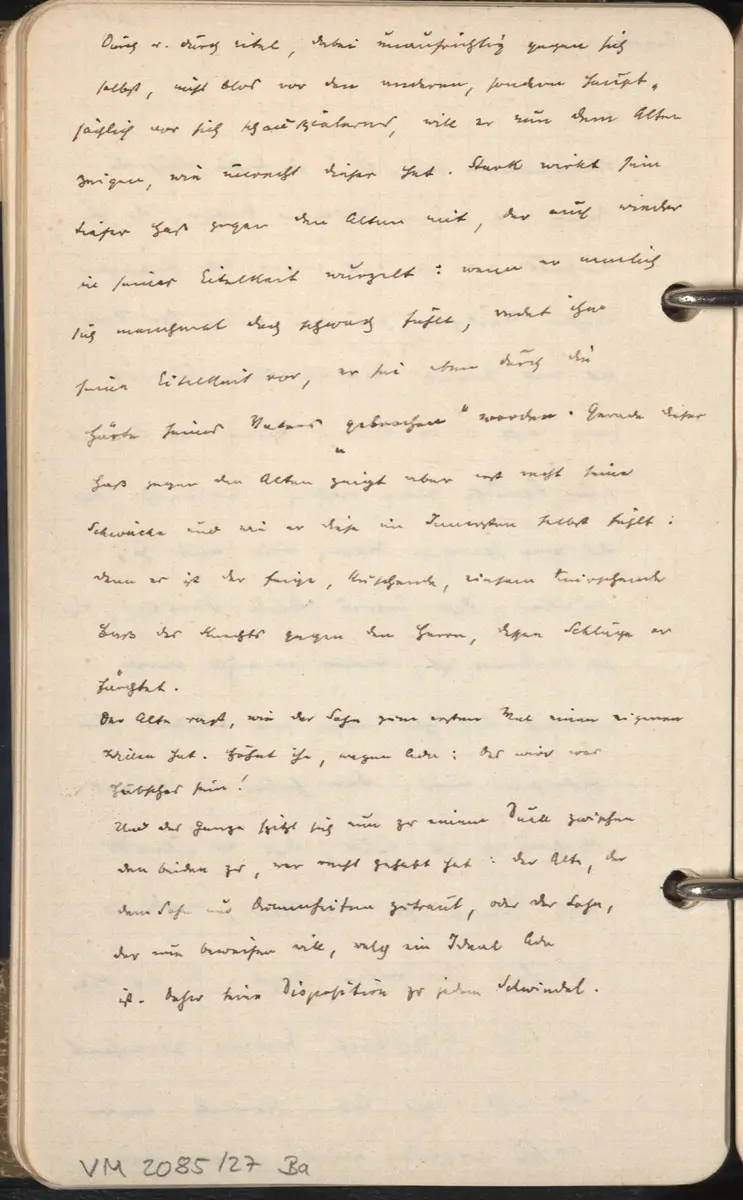 Durch u. durch eitel, dabei unaufrichtig gegen sich
selbst, nicht blos vor den anderen, sondern haupt-
sächlich vor sich schauspielernd, will er nun dem Alten
zeigen, wie unrecht dieser hat. Stark wirkt sein
tiefer Haß gegen den Alten mit, der auch wieder
in seiner Eitelkeit wurzelt: wenn er nemlich
sich manchmal doch schwach fühlt, redet ihm
seine Eitelkeit vor, er sei eben durch die
Härte seines Vaters „gebrochen“ worden. Gerade dieser
Haß gegen den Alten zeigt aber erst recht seine
Schwäche und wie er diese im Innersten selbst fühlt:
denn es ist der feige, kuschende, einsam knirschende
Haß des Knechts gegen den Herrn, dessen Schläge er
fürchtet.
Der Alte rast, wie der Sohn zum ersten Mal einen eigenen
Willen hat. Höhnt ihn, wegen Ada: Das wird was
Hübsches sein!
Und das Ganze spitzt sich nun zu einem Duell zwischen
den beiden zu, wer recht gehabt hat: der Alte, der
dem Sohn nur Dummheiten zutraut, oder der Sohn,
der nun beweisen will, welch ein Ideal Ada
ist. Daher seine Disposition zu jedem Schwindel.
VM 2085/27 Ba